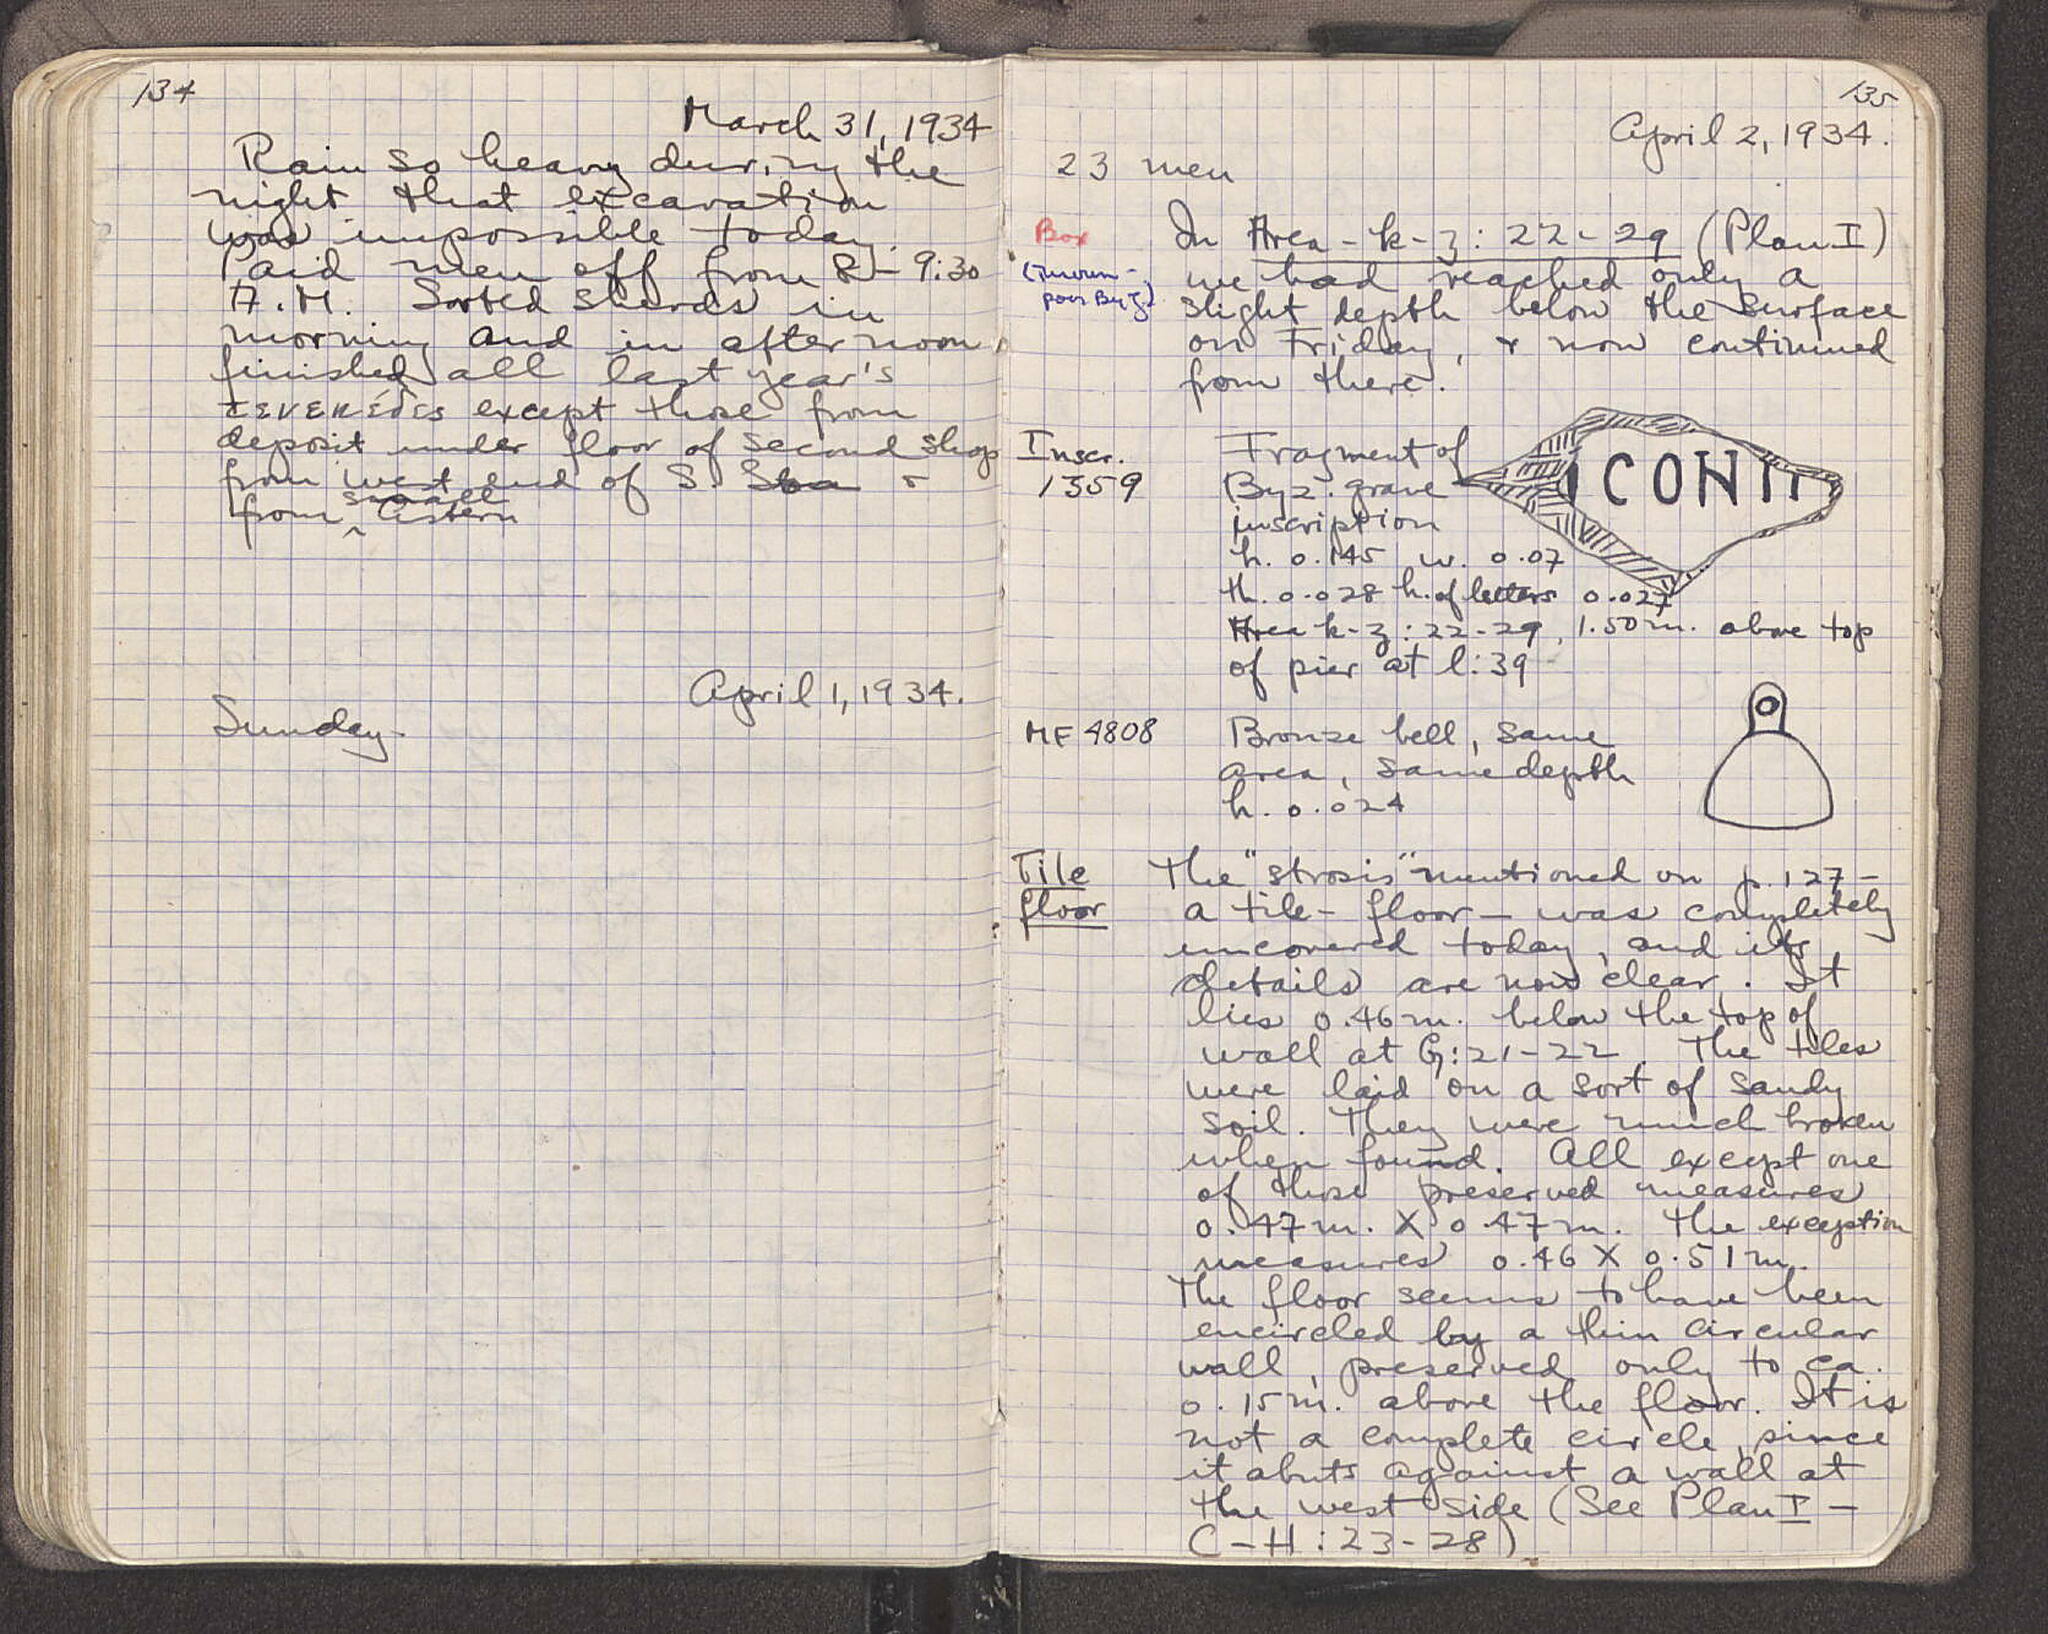 134
March 31, 1934
Rain so heavy during the
night that excavation
was impossible today.
Paid men off from 8 - 9:30
A.M. Sorted sherds in
morning and in afternoon
finished all last year's
τενεκέδες except those from
deposit under floor of second shop
from west end of S. Stoa &
small
from ^ cistern
April 1, 1934.
Sunday.
135
April 2, 1934.
23 men
Box
In Area - k-z: 22-29 (Plan I)
we had reached only a
poor Byz)
slight depth below the surface
on Friday, & now continued
from there.
Inscr.
1359
Fragment of
Byz. grave
inscription
ICONII
h. 0.145 w. 0.07
th. 0.028 h. of letters 0.027
Area k-z: 22-29, 1.50 m. above top
of pier at l:39
MF 4808
Bronze bell, same
area, same depth
h. 0.024
Tile
floor
The "strosis" mentioned on p. 127 -
a tile-floor - was completely
uncovered today, and its
details are now clear. It
lies 0.46 m. below the top of
wall at G:21-22. The tiles
were laid on a sort of sandy
soil. They were much broken
when found. All except one
of those preserved measures
0.47 m. X 0.47 m. The exception
measures 0.46 X 0.51 m.
The floor seems to have been
encircled by a thin circular
wall, preserved only to ca.
0.15 m. above the floor. It is
not a complete circle, since
it abuts against a wall at
the west side (See Plan I -
C-H:23-28)